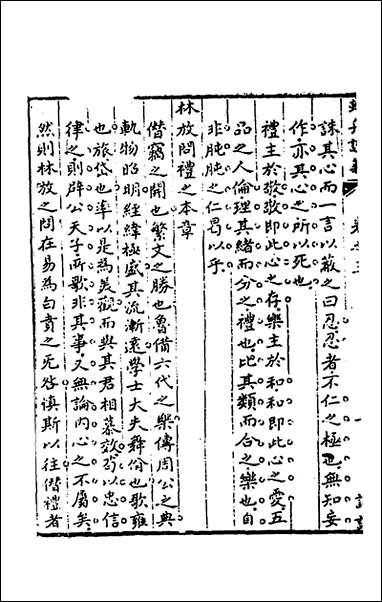 誅其心而一言以蔽之曰忍忍者不仁之極也無知妄
作亦其心之所以死也
禮主於敬敬即此心之存樂主於和和即此心之愛五
品之人倫理其緒而分之禮也比其類而合之樂也自
非肫肫之仁曷以乎
林放問禮之本章
僭竊之開也繁文之勝也魯備六代之樂傳周公之典
軌物昭明經緯極盛其流漸遠學士大夫舞佾也歌雍
也旅岱也率以是為美觀而與其君相慕效苟以忠信
律之則辟公天子所歌非其事又無論内心之不屬矣
然則林放之問在易為白賁之无咎慎斯以往僭禮者